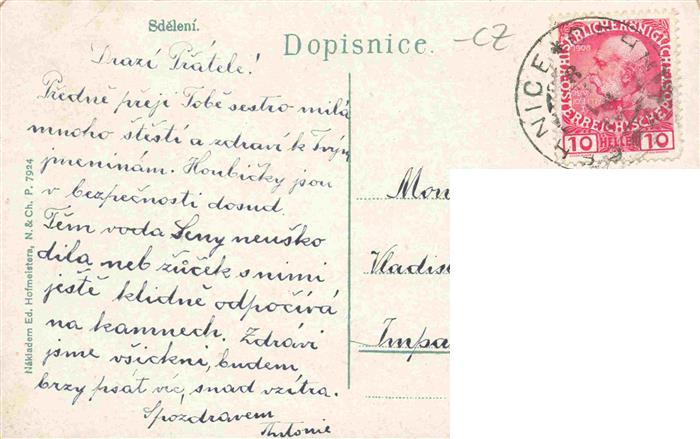 Sdělení.
Dopisnice.
-CZ
Drazí Přátele!
Předně přeji Tobě sestro milá
mnoho štěstí a zdraví k Tvým
jmeninám. Houbičky jsou
v bezpečnosti dosud.
Těm voda Seny neuško
dila neb žůček s nimi
ještě klidně odpočívá
na kamnech. Zdrávi
jsme všickni, budem
brzy psát víc, snad vzítra.
S pozdravem
Antonie
Mon
Vladis
Impa
Nákladem Ed. Hofmeistera, N. & Ch. P. 7924
1908
10 HELLER 10
NICE